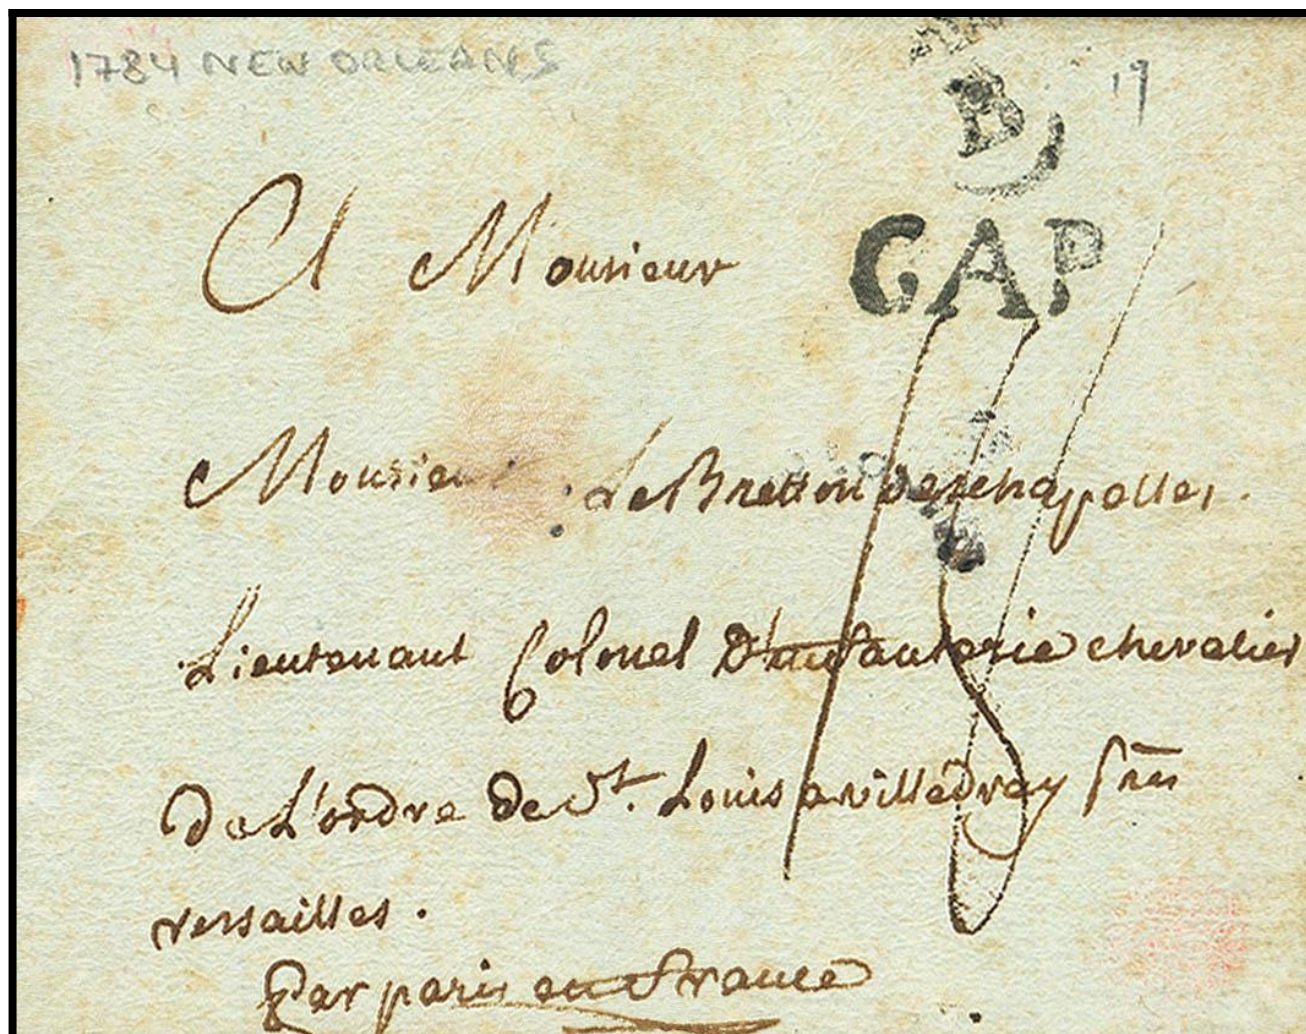 1784 NEW ORLEANS
B
CAP
A Monsieur
Monsieur le Bretton deschapelles
Lieutenant Colonel D'infanterie chevalier
De L'ordre de St. Louis a villedvray prés
versailles.
Par paris en france
18